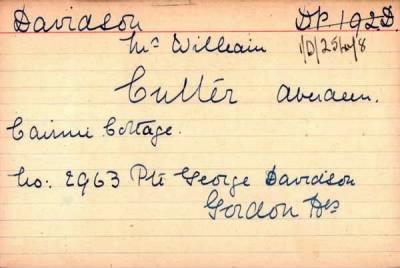 Davidson DP. 192D.
Mr William 1/D/25/10/8
Culter Aberdeen.
Cairnie Cottage.
No: 2963 Pte George Davidson
Gordon Hrs